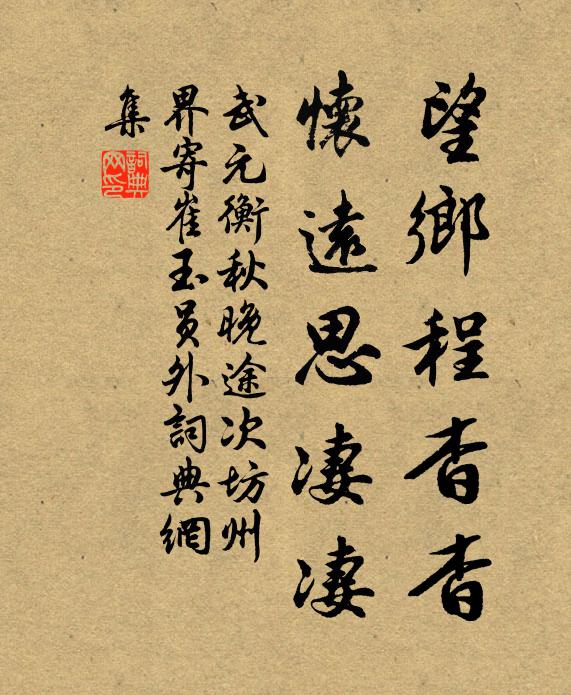 望鄉程杳杳
懷遠思凄凄
武元衡秋晚途次坊州
界寄崔玉員外詞典網
集
詞典
网印